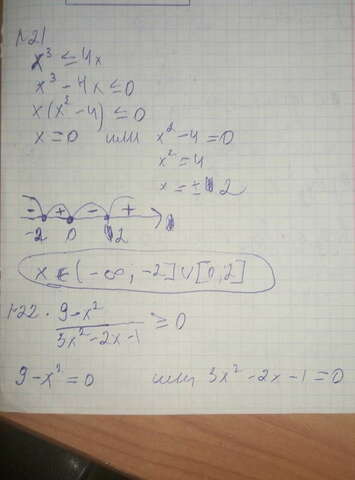 №21
x³ ≤ 4x
x³ - 4x ≤ 0
x(x² - 4) ≤ 0
x = 0 или x² - 4 = 0
x² = 4
x = ± 2
- + - +
-2 0 2
x ∈ (-∞; -2] ∪ [0; 2]
№22. (9 - x²)/(3x² - 2x - 1) ≥ 0
9 - x² = 0 или 3x² - 2x - 1 = 0